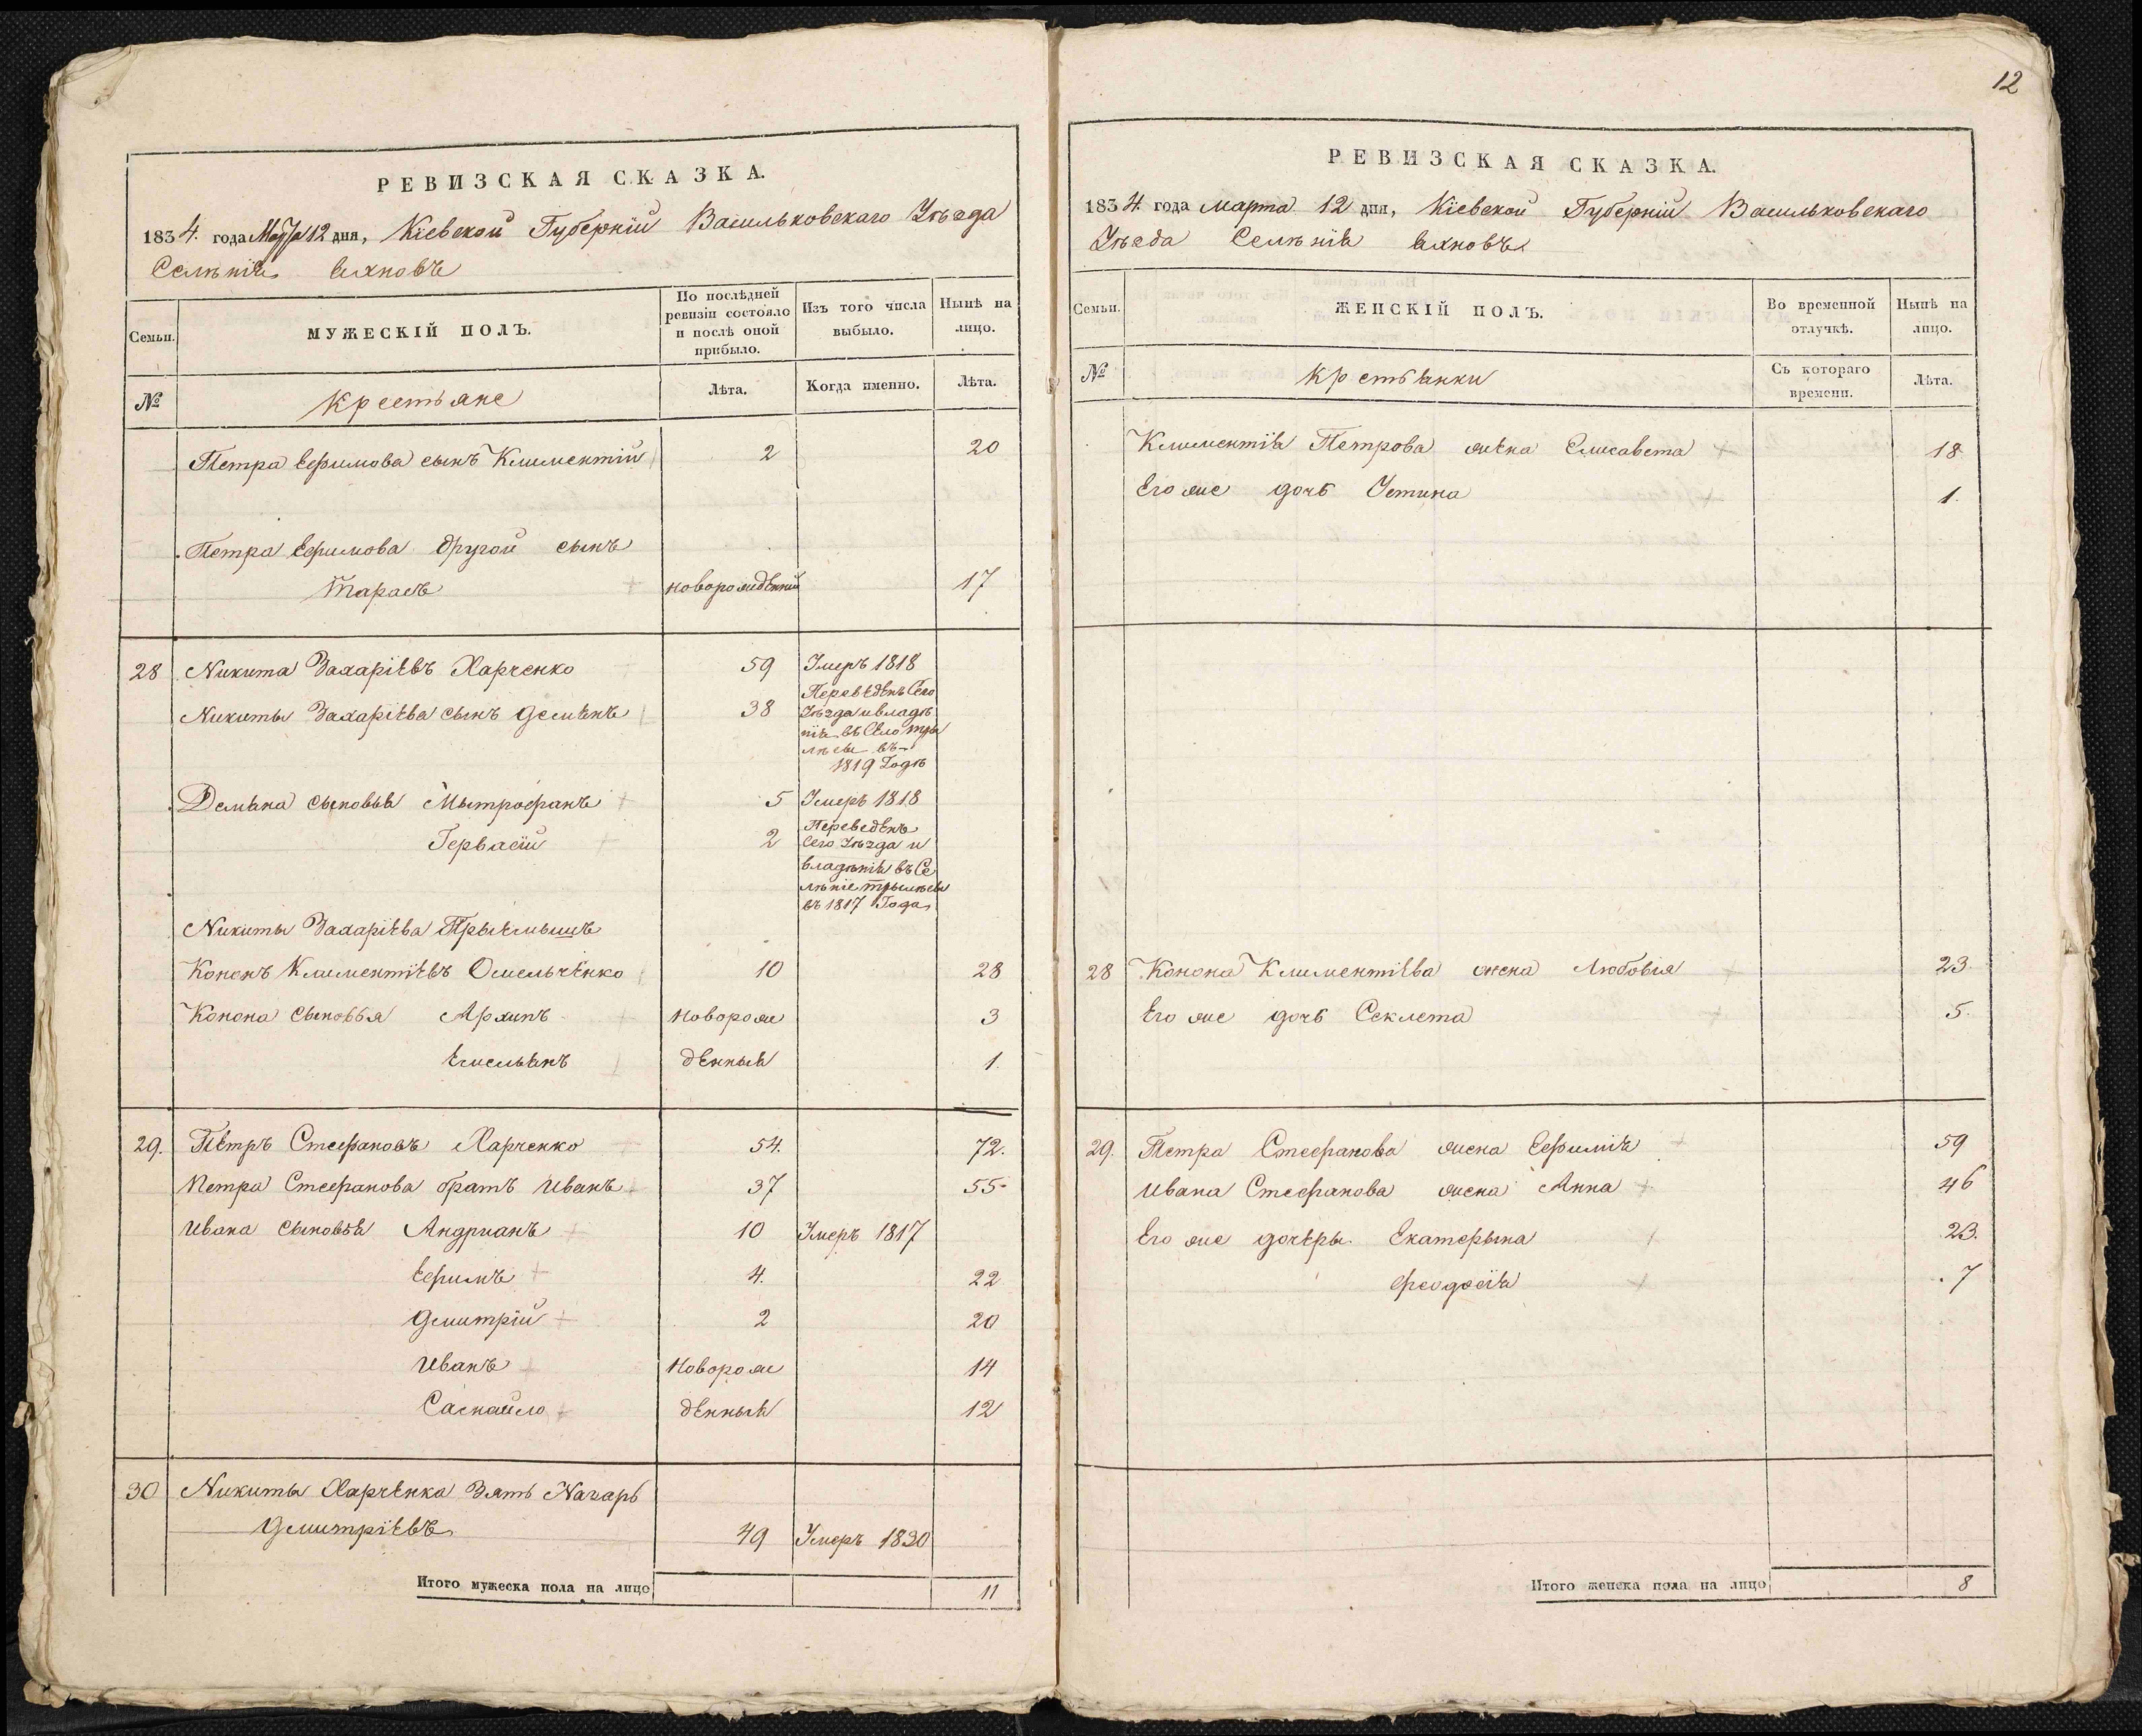 12
РЕВИЗСКАЯ СКАЗКА.
1834. года Марта 12 дня, Кіевской Губерніи Васильковскаго Уѣзда
Селѣнія
Семьи.
МУЖЕСКІЙ ПОЛЪ.
По послѣдней ревизіи состояло и послѣ оной прибыло.
Изъ того числа выбыло.
Нынѣ на лицо.
№
Крестьяне
Лѣта.
Когда именно.
Лѣта.
Петра Ефимова сынъ Климентій 2 20
Петра Ефимова другой сынъ
Тарасъ новорожденній 17
28 Никита Захаріевъ Харченко 59 Умеръ 1818
Никиты Захаріева сынъ Демянъ 38 Переведенъ Сего
Уѣзда и владѣ
нія въ Село Тры
лѣсы въ
1819 Годѣ
Демяна сыновья Мытрофанъ 5 Умеръ 1818
Гервасій 2 Переведенъ
Сего Уѣзда и
владѣнія въ Се
лѣніе Трылѣсы
въ 1817 Года
Никиты Захаріева Прыемышъ
Кононъ Климентіевъ Омельченко 10 28
Конона сыновья Архипъ новорож 3
Емельянъ денныя 1.
29. Петръ Стефановъ Харченко 54. 72.
Петра Стефанова братъ Иванъ 37 55
Ивана сыновья Андрианъ 10 Умеръ 1817
Ефимъ 4. 22
Дмитрій 2 20
Иванъ новорож 14
денныя 12
30 Никиты Харченка Зять Назарь
Дмитріевъ 49 Умеръ 1830
Итого мужеска пола на лицо 11
РЕВИЗСКАЯ СКАЗКА.
1834. года марта 12 дня, Кіевской Губерніи Васильковскаго
Уѣзда Селѣнія
Семьи.
ЖЕНСКІЙ ПОЛЪ.
Во временной отлучкѣ.
Нынѣ на лицо.
№
Крстьянки
Съ котораго времени.
Лѣта.
Климентія Петрова жена Елисавета 18
Его же дочь Устина 1.
28 Конона Климентіева жена Любовія 23.
Его же дочь Секлета 5.
29. Петра Стефанова жена Ефимія 59
Ивана Стефанова жена Анна 46
Его же дочеры Екатерына 23.
Феодосія 7
Итого женска пола на лицо 8